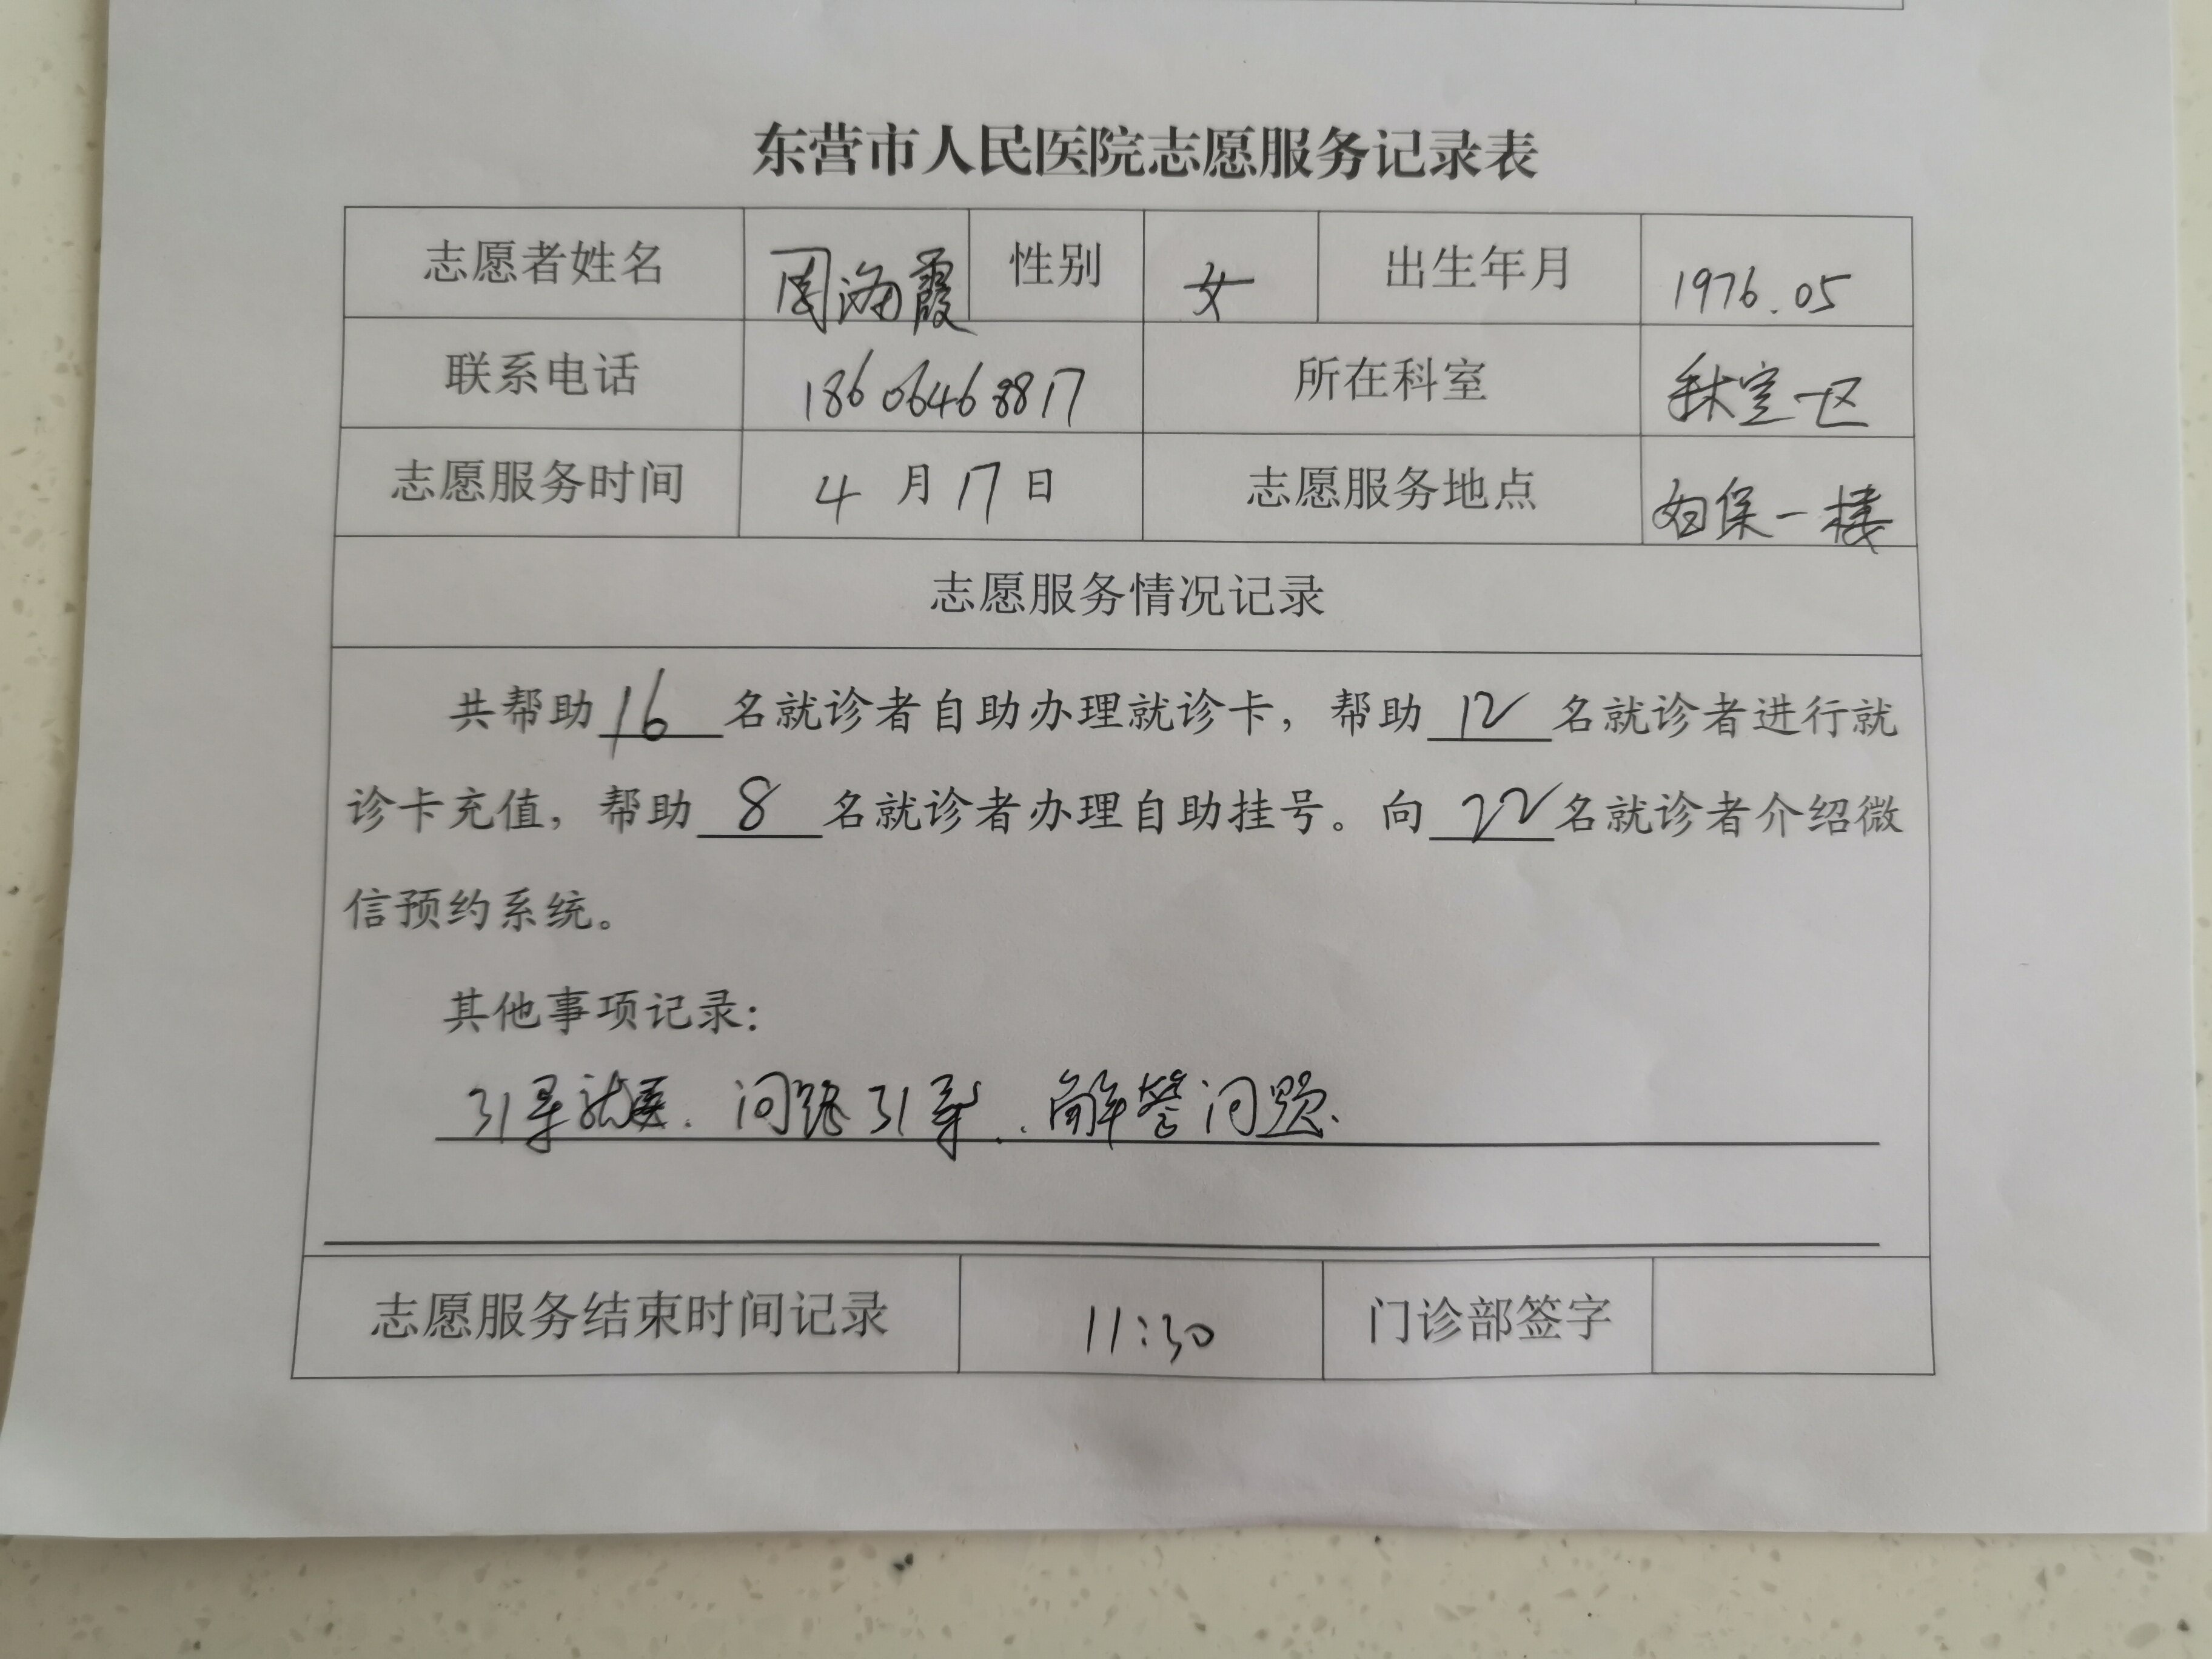 东营市人民医院志愿服务记录表
志愿者姓名 周海霞 性别 女 出生年月 1976.05
联系电话 18606468817 所在科室 手术室一区
志愿服务时间 4月17日 志愿服务地点 妇保一楼
志愿服务情况记录
共帮助16名就诊者自助办理就诊卡，帮助12名就诊者进行就
诊卡充值，帮助8名就诊者办理自助挂号。向22名就诊者介绍微
信预约系统。
其他事项记录：
引导就医．问路引导．．解答问题．
志愿服务结束时间记录 11:30 门诊部签字